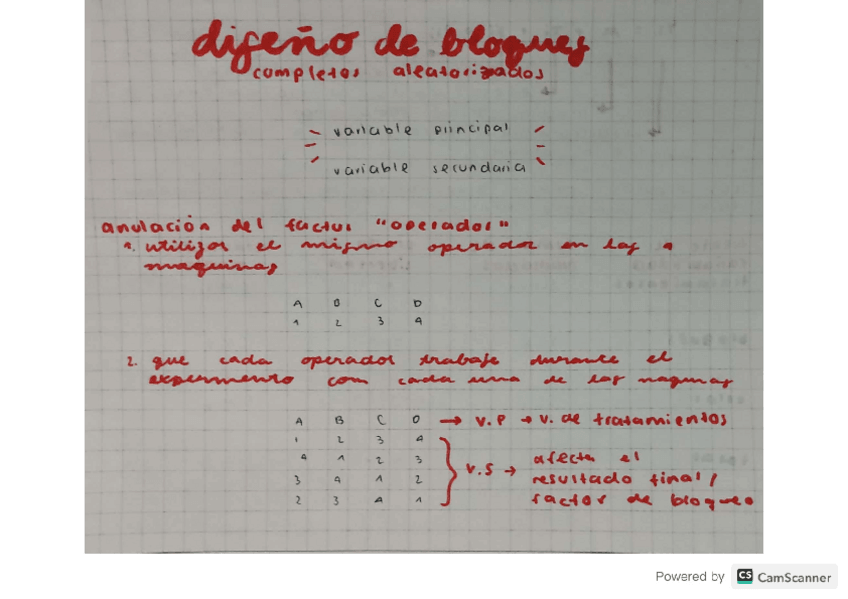 diseño de bloques
completos aleatorizados
variable principal
variable secundaria
anulación del factor "operador"
1. utilizar el mismo operador en las 4
maquinas
A B C D
1 2 3 4
2. que cada operador trabaje durante el
experimento con cada una de las maquinas
A B C D → v.P → v. de tratamientos
1 2 3 4
4 1 2 3
3 4 1 2
2 3 4 1
v.s → afecta el
resultado final/
factor de bloqueo
Powered by CS CamScanner